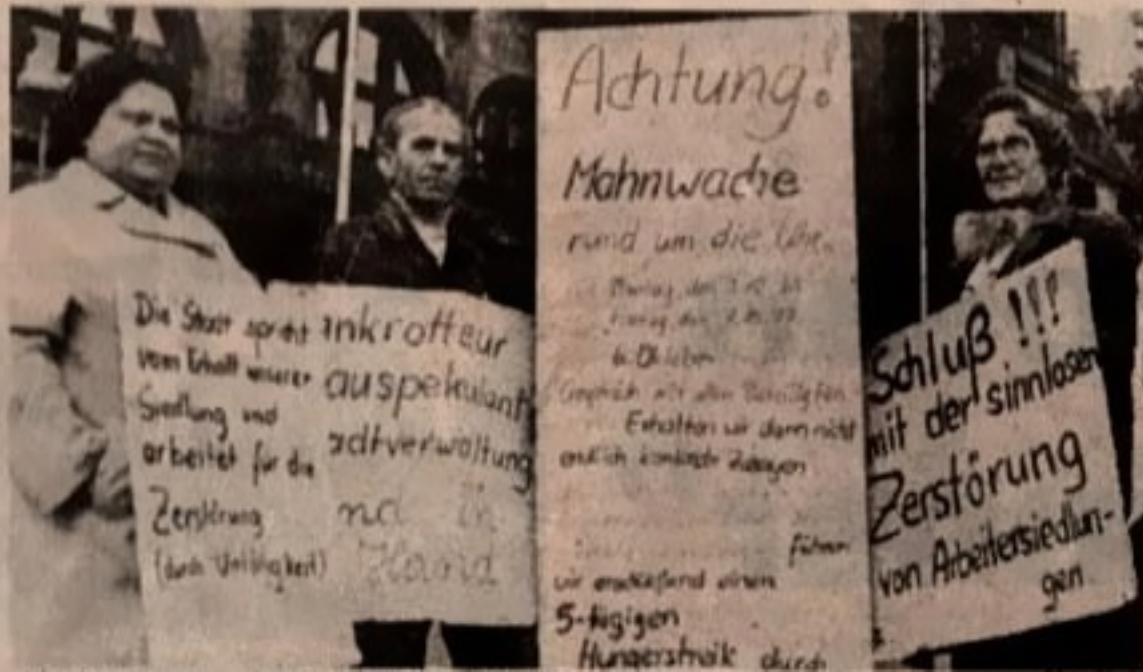 Die Stadt spricht
vom Erhalt unserer
Siedlung und
arbeitet für die
Zerstörung
(durch Untätigkeit)
ankrotteur
auspekulant
adtverwaltung
nd in
Hand
Achtung!
Mahnwache
rund um die Uhr.
6. Oktober
Gespräch mit allen Beteiligten
Erhalten wir dann nicht
endlich konkrete Zusagen
führen
wir anschließend einen
5-tägigen
Hungerstreik durch
Schluß !!!
mit der sinnlosen
Zerstörung
von Arbeitersiedlun-
gen